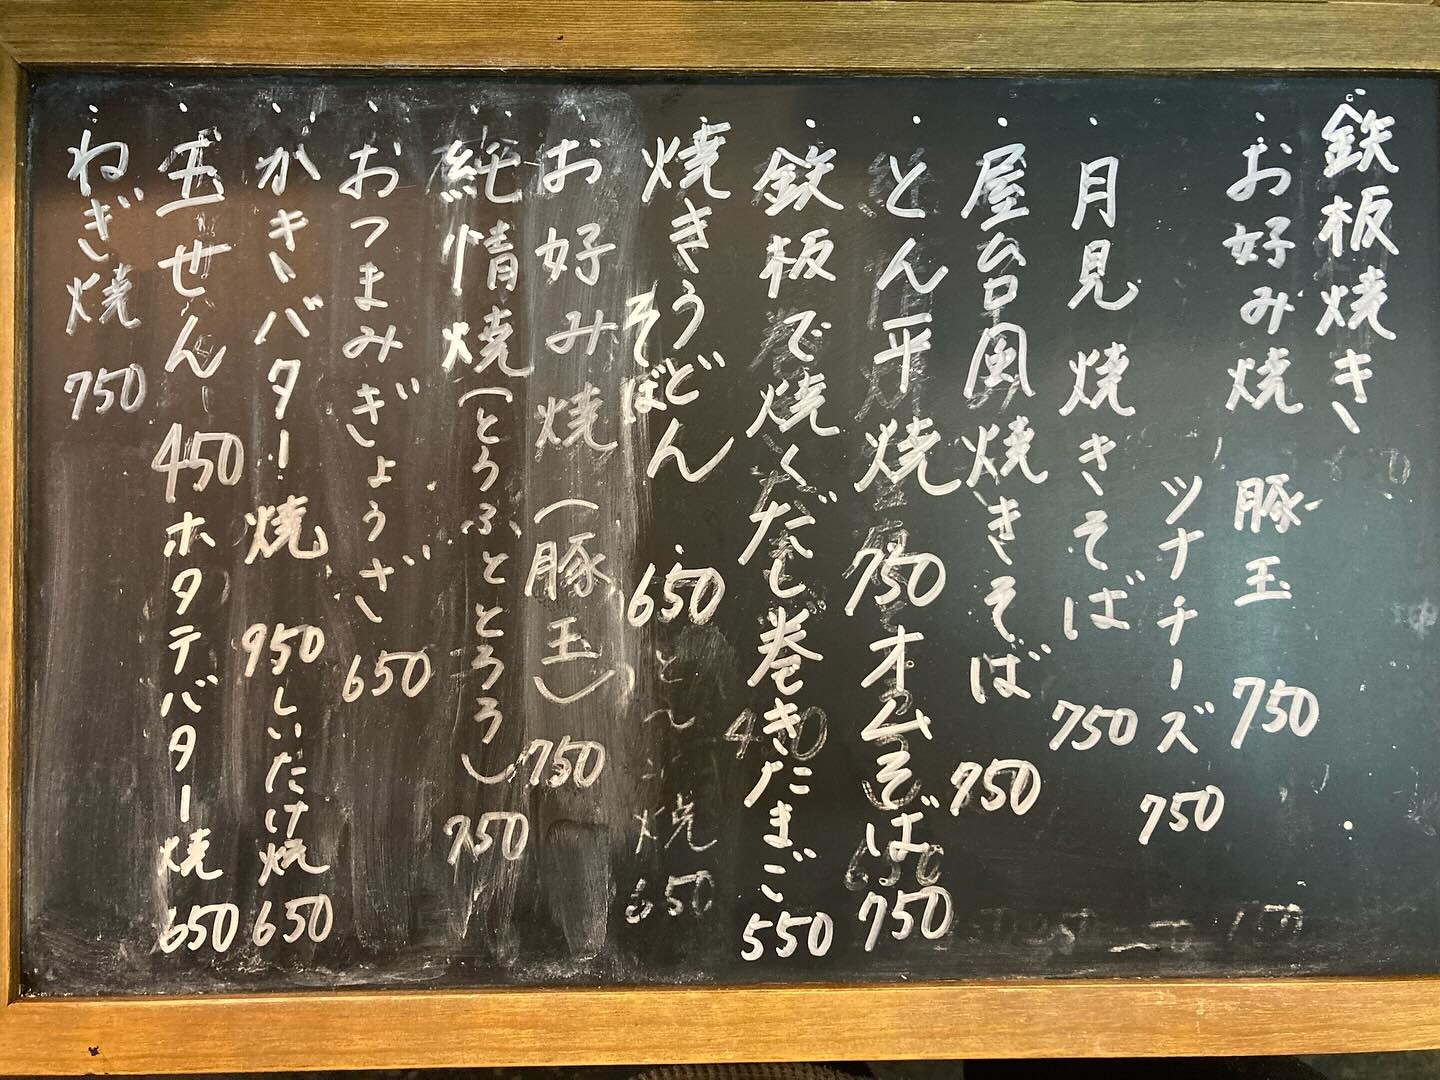 鉄板焼き
お好み焼 豚玉 750
ツナチーズ 750
月見焼きそば 750
屋台風焼きそば 750
とん平焼 750 オムそば 750
鉄板で焼くだし巻きたまご 550
焼きうどん 650
そばぼ
とん平焼 650
お好み焼(豚玉) 750
純情焼(とうふととろろ) 750
おつまみぎょうざ 650
かきバター焼 950 しいたけ焼 650
玉せん 450 ホタテバター焼 650
ねぎ焼 750